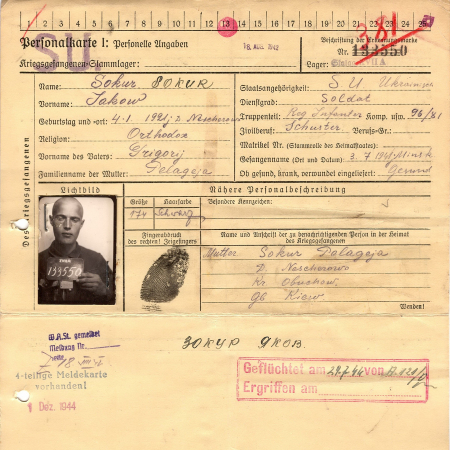 1 2 3 4 5 6 7 8 9 10 11 12 13 14 15 16 17 18 19 20 21 22 23 24 25
Personalkarte I: Personelle Angaben
Kriegsgefangenen-Stammlager:
SU
1942
381
Beschriftung der Erkennungsmarke
Nr. 133550
Lager:
Des Kriegsgefangenen
Name: Sokur Сокур
Vorname: Jakow
Geburtstag und -ort: 4.1.1921
Religion: Orthodox
Vorname des Vaters: Grigorij
Familienname der Mutter: Pelageja
Staatsangehörigkeit: S U Ukrainer
Dienstgrad: Soldat
Truppenteil: Komp. usw. 96/
Zivilberuf: Schuster Berufs-Gr.:
Matrikel Nr. (Stammrolle des Heimatstaates):
Gefangennahme (Ort und Datum): 3.7.1941 Minsk
Ob gesund, krank, verwundet eingeliefert: Gesund
Lichtbild
133550
Nähere Personalbeschreibung
Größe
Haarfarbe
Besondere Kennzeichen:
174
Schwarz
Fingerabdruck
des rechten! Zeigefingers
Name und Anschrift der zu benachrichtigenden Person in der Heimat
des Kriegsgefangenen
Mutter Sokur Palageja
D. Neschorowo
Kr. Obuchow
gb Kiew
Wenden!
W.A.St. gemeldet
Meldung Nr.
18
4-teilige Meldekarte
vorhanden!
Dez. 1944
Зокур Яков.
Geflüchtet am von
Ergriffen am